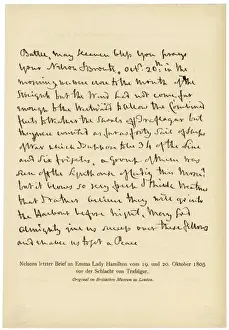 Battle, may heaven bless you prays
your Nelson & Bronte, Octr. 20th. in the
morning we were close to the mouth of the
Streights but the Wind had not come far
enough to the Westward to allow the Combined
fleets to Weather the Shoals off Traflagar but
they were counted as far as forty Sail of Ships
of War which I suppose to be 34 of the Line
and Six frigates, a group of them was
seen off the Lighthouse of Cadiz this Morng
but it blows so very fresh & thick weather
that I rather believe they will go into
the Harbour before night, May God
Almighty give us success over these fellows
and enable us to get a Peace
Nelsons letzter Brief an Emma Lady Hamilton vom 19. und 20. Oktober 1805
vor der Schlacht von Trafalgar.
Original im Britischen Museum zu London.